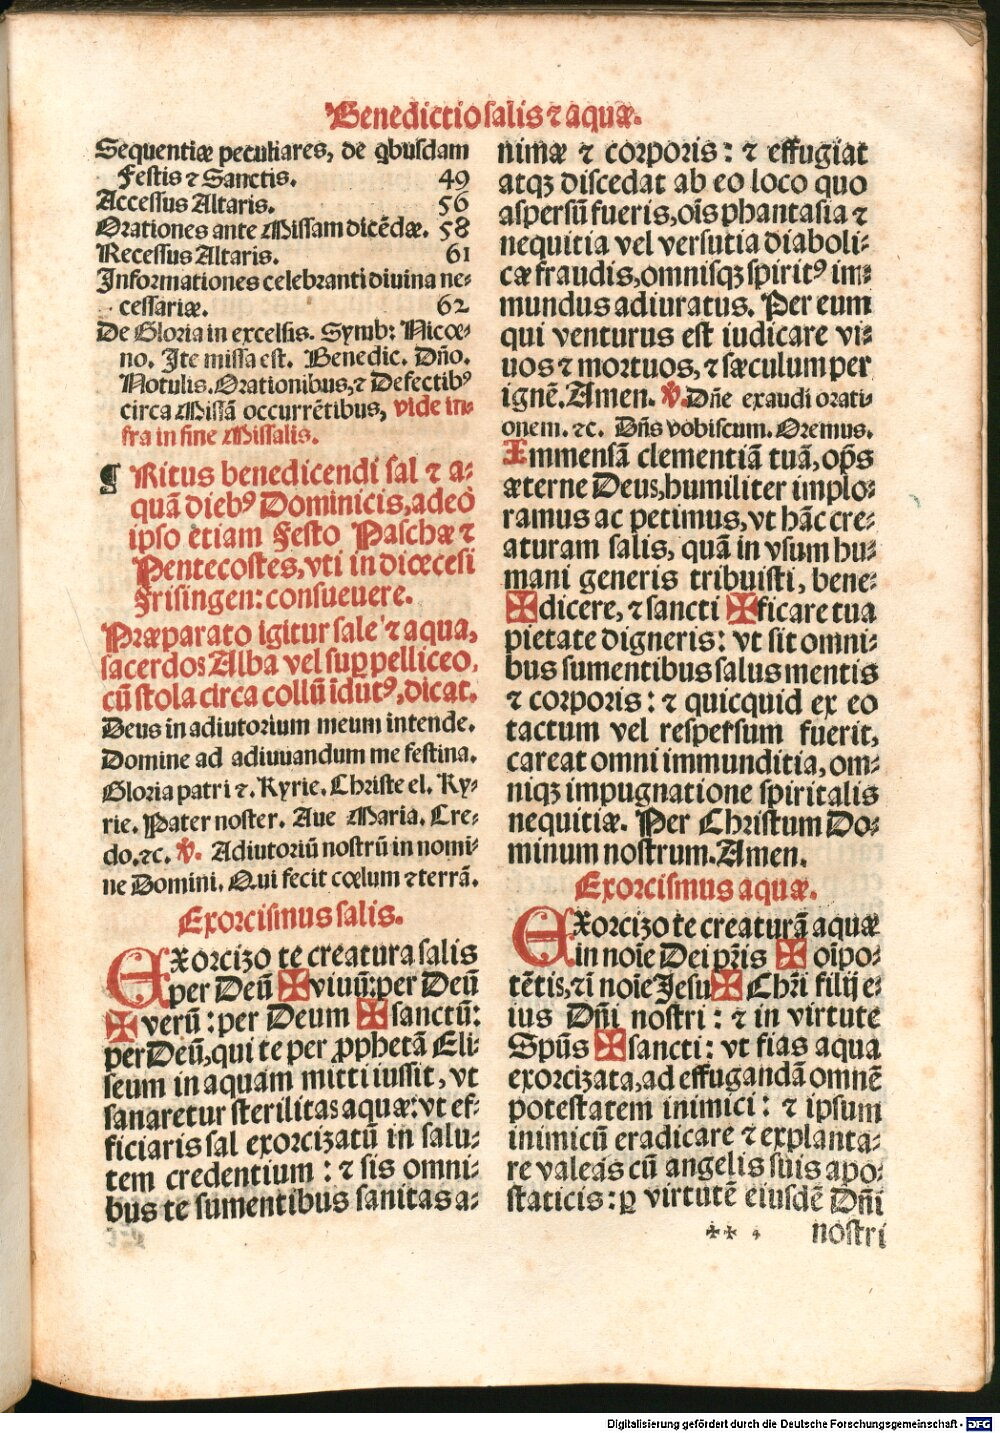 Benedictio salis ⁊ aquæ.
Sequentiæ peculiares, de qbusdam
Festis ⁊ Sanctis. 49
Accessus Altaris. 56
Orationes ante Missam dicẽdæ. 58
Recessus Altaris. 61
Informationes celebranti diuina ne⸗
cessariæ. 62
De Gloria in excelsis. Symb: Nicœ⸗
no. Ite missa est. Benedic. Dño.
Notulis. Orationibus, ⁊ Defectibꝰ
circa Missã occurrẽtibus, vide in⸗
fra in fine Missalis.
¶ Ritus benedicendi sal ⁊ a⸗
quã diebꝰ Dominicis, adeò
ipso etiam Festo Paschæ ⁊
Pentecostes, vti in diœcesi
Frisingen: consueuere.
Præparato igitur sale ⁊ aqua,
sacerdos Alba vel suꝑpelliceo,
cũ stola circa collũ ĩdutꝰ, dicat.
Deus in adiutorium meum intende.
Domine ad adiuuandum me festina.
Gloria patri ⁊. Kyrie. Christe el. Ky⸗
rie. Pater noster. Aue Maria. Cre⸗
do. ⁊c. ℣. Adiutoriũ nostrũ in nomi⸗
ne Domini. Qui fecit cœlum ⁊ terrã.
Exorcismus salis.
EXorcizo te creatura salis
per Deũ ✠ viuũ: per Deũ
✠ verũ: per Deum ✠ sanctũ:
per Deũ, qui te per ꝓphetã Eli⸗
seum in aquam mitti iussit, vt
sanaretur sterilitas aquæ: vt ef⸗
ficiaris sal exorcizatũ in salu⸗
tem credentium: ⁊ sis omni⸗
bus te sumentibus sanitas a⸗
nimæ ⁊ corporis: ⁊ effugiat
atqȝ discedat ab eo loco quo
aspersũ fueris, oĩs phantasia ⁊
nequitia vel versutia diaboli⸗
cæ fraudis, omnisqȝ spiritꝰ im⸗
mundus adiuratus. Per eum
qui venturus est iudicare vi⸗
uos ⁊ mortuos, ⁊ sæculum per
ignẽ. Amen. ℣. Dñe exaudi orati⸗
onem. ⁊c. Dñs vobiscum. Oremus.
Immensã clementiã tuã, oꝑs
æterne Deus, humiliter implo⸗
ramus ac petimus, vt hãc cre⸗
aturam salis, quã in vsum hu⸗
mani generis tribuisti, bene⸗
✠ dicere, ⁊ sancti ✠ ficare tua
pietate digneris: vt sit omni⸗
bus sumentibus salus mentis
⁊ corporis: ⁊ quicquid ex eo
tactum vel respersum fuerit,
careat omni immunditia, om⸗
niqȝ impugnatione spiritalis
nequitiæ. Per Christum Do⸗
minum nostrum. Amen.
Exorcismus aquæ.
EXorcizo te creaturã aquæ
in noĩe Dei pr̃is ✠ oĩpo⸗
tẽtis, ⁊ ĩ noĩe Jesu ✠ Chr̃i filij e⸗
ius Dñi nostri: ⁊ in virtute
Spũs ✠ sancti: vt fias aqua
exorcizata, ad effugandã omnẽ
potestatem inimici: ⁊ ipsum
inimicũ eradicare ⁊ explanta⸗
re valeas cũ angelis suis apo⸗
staticis: ꝑ virtutẽ eiusdẽ Dñi
✠✠ nostri
Digitalisierung gefördert durch die Deutsche Forschungsgemeinschaft - DFG